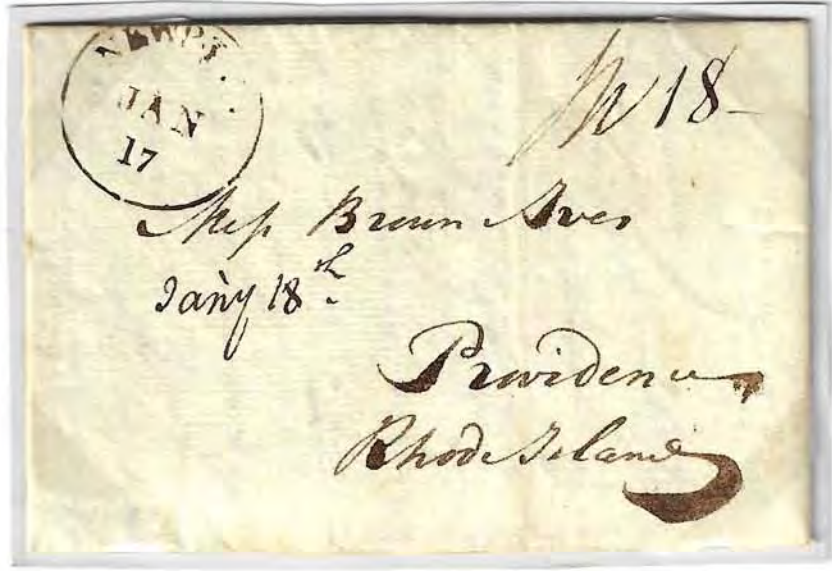 JAN
17
18
Mess Brown Ives
Jany 18th
Providence
Rhode Island